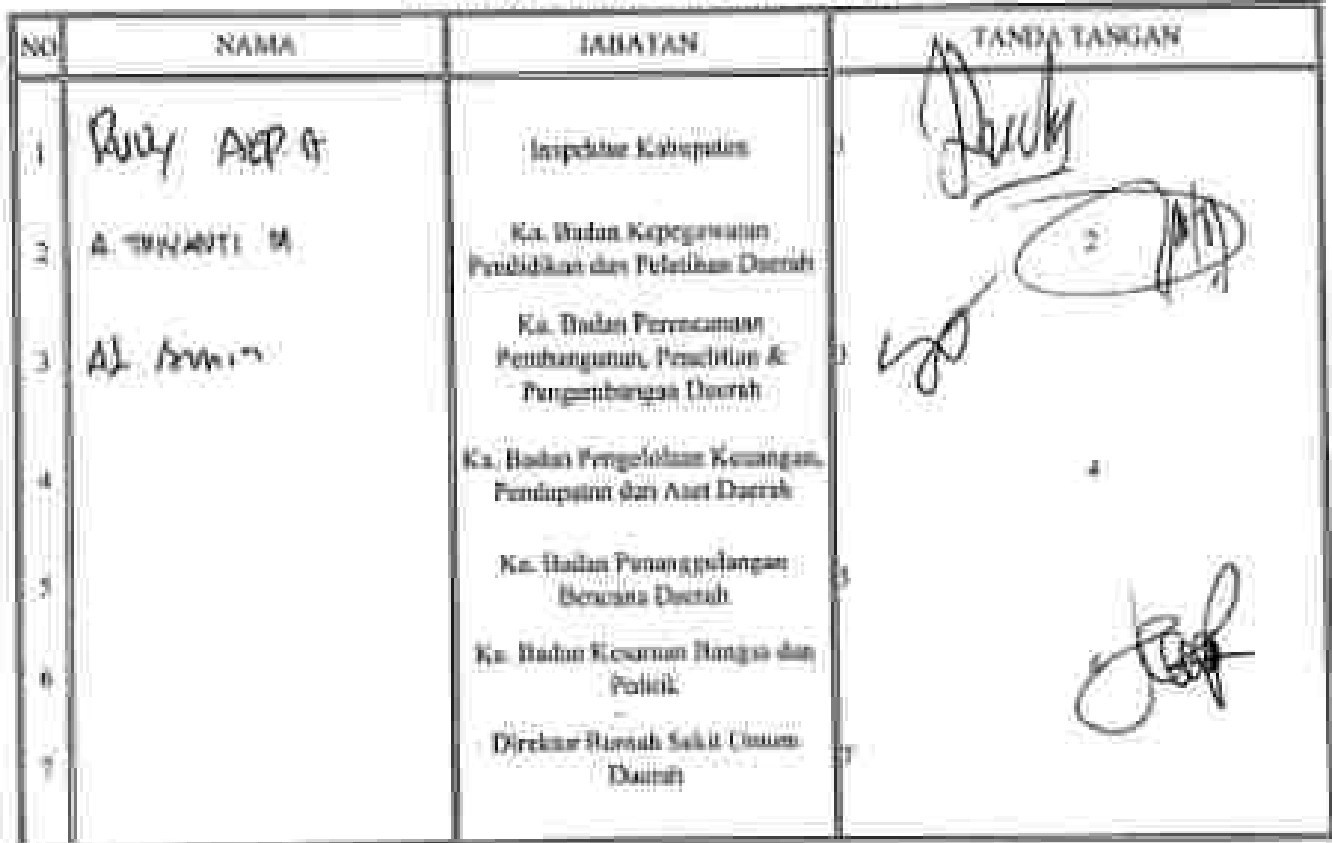 NO NAMA JABATAN TANDA TANGAN
1 Inspektur Kabupaten 1
2 A. M Ka. Badan Kepegawaian 2
Pendidikan dan Pelatihan Daerah
3 Al Amin Ka. Badan Perencanaan 3
Pembangunan, Penelitian &
Pengembangan Daerah
4 Ka. Badan Pengelolaan Keuangan, 4
Pendapatan dan Aset Daerah
5 Ka. Badan Penanggulangan 5
Bencana Daerah
6 Ka. Badan Kesatuan Bangsa dan 6
Politik
7 Direktur Rumah Sakit Umum 7
Daerah